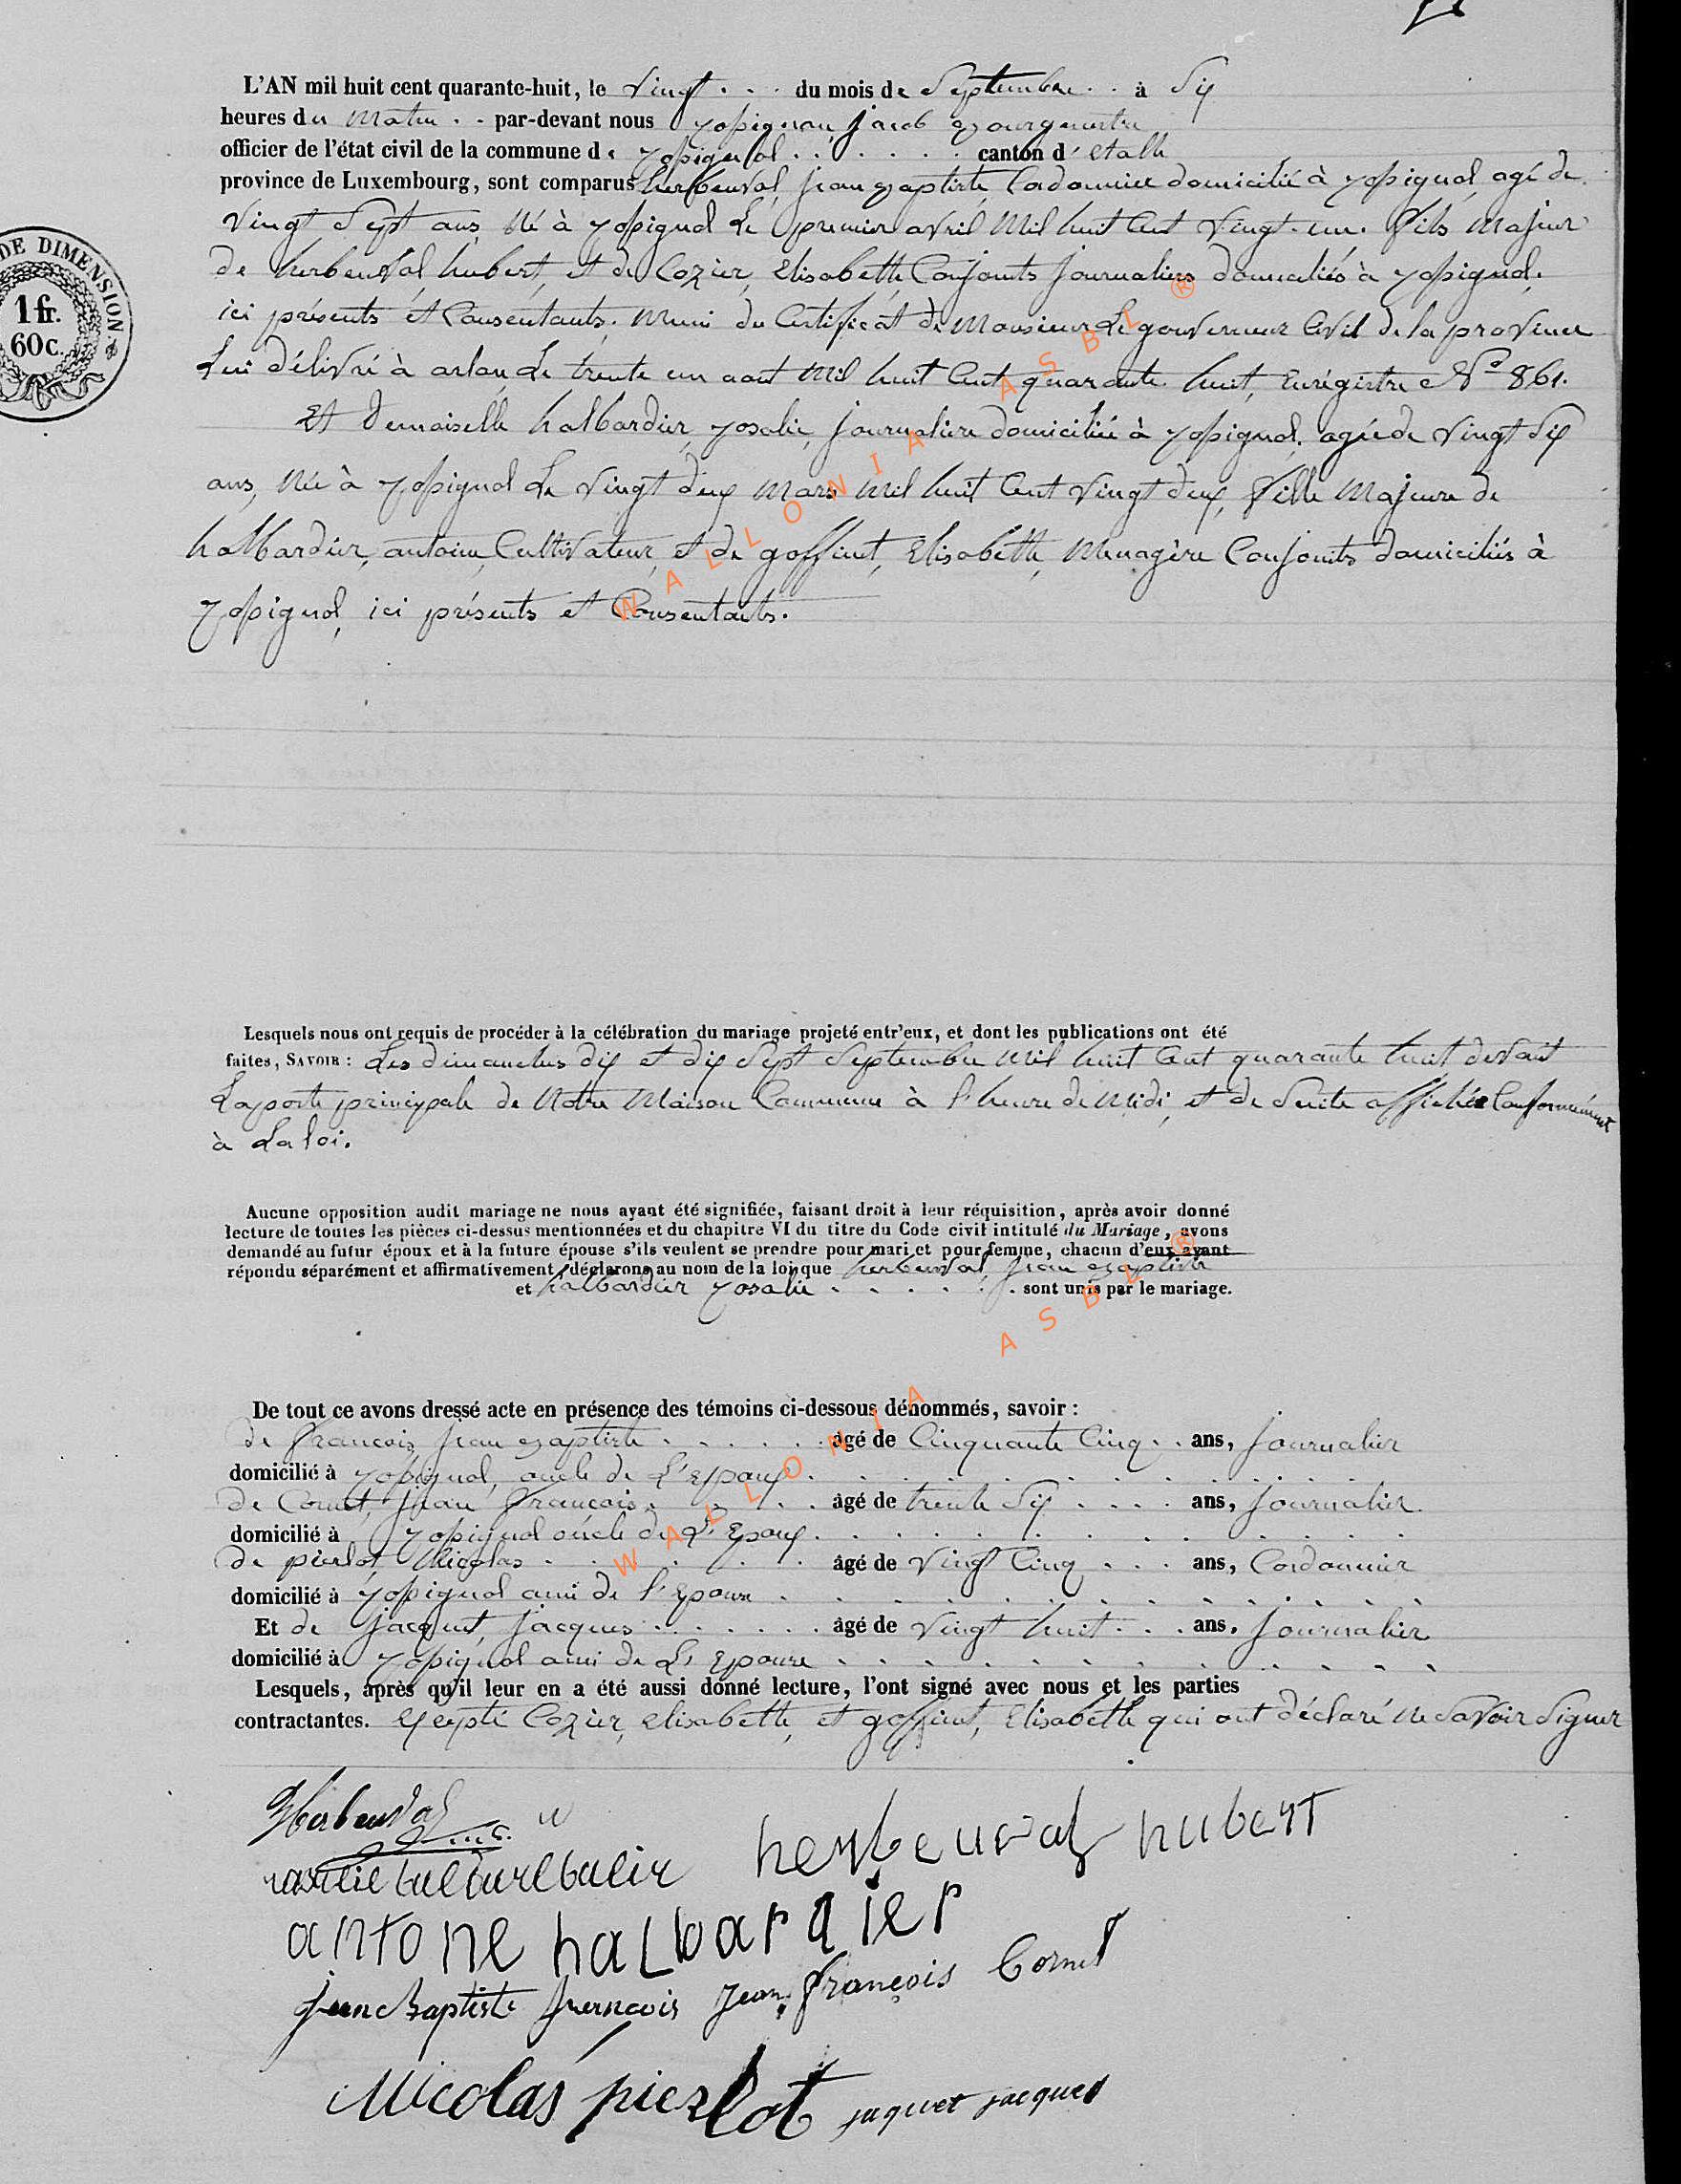 L'AN mil huit cent quarante-huit, le Vingt . . . du mois de Septembre . . à Six
heures du Matin . . par-devant nous Jacob Bourgmestre
officier de l'état civil de la commune de Rossignol . . . . . . canton d'Etalle
province de Luxembourg, sont comparus herbeuval, jean Baptiste, Cordonnier domicilié à Rossignol, agé de
Vingt Sept ans, Né à Rossignol Le premier avril Mil huit Cent Vingt-un. Fils Majeur
de herbeuval, hubert, et de Cozier, Elisabeth Conjoints journaliers domiciliés à Rossignol,
ici présents et Consentants. Muni du Certificat de Monsieur Le gouverneur Civil de la province
Lui délivré à arlon Le trente un aout Mil huit Cent quarante huit, Enrégistre N° 861.
Et Demoiselle halbardier, Rosalie, journalière domiciliée à Rossignol, agée de Vingt Six
ans, Née à Rossignol Le Vingt deux Mars Mil huit Cent Vingt deux, Fille Majeure de
halbardier, antoine, Cultivateur, et de goffinet, Elisabeth, Menagère Conjoints domiciliés à
Rossignol, ici présents et Consentants.
DE DIMENSION.
1 fr.
60 c.
Lesquels nous ont requis de procéder à la célébration du mariage projeté entr'eux, et dont les publications ont été
faites, SAVOIR : Les dimanches dix et dix Sept Septembre Mil huit Cent quarante huit, devant
La porte principale de Notre Maison Commune à l'heure de Midi, et de Suite affichées Conformément
à La loi.
Aucune opposition audit mariage ne nous ayant été signifiée, faisant droit à leur réquisition, après avoir donné
lecture de toutes les pièces ci-dessus mentionnées et du chapitre VI du titre du Code civil intitulé du Mariage, avons
demandé au futur époux et à la future épouse s'ils veulent se prendre pour mari et pour femme, chacun d'eux ayant
répondu séparément et affirmativement, déclarons au nom de la loi que herbeuval, jean Baptiste
et halbardier Rosalie . . . . . . sont unis par le mariage.
De tout ce avons dressé acte en présence des témoins ci-dessous dénommés, savoir :
de François, jean Baptiste . . . . . . âgé de Cinquante Cinq . . ans, journalier
domicilié à Rossignol, oncle de L'Epoux . . . . . . . . . . . .
de Cornet, jean François . . . . . âgé de trente Six . . . . ans, journalier.
domicilié à Rossignol oncle de L'Epoux . . . . . . . . . . .
de pierlot, Nicolas . . . . . . âgé de Vingt Cinq . . . ans, Cordonnier
domicilié à Rossignol ami de l'Epouse . . . . . . . . . . . .
Et de jacquet, jacques . . . . . . âgé de Vingt huit . . . ans, journalier
domicilié à Rossignol ami de L'Epouse . . . . . . . . . . .
Lesquels, après qu'il leur en a été aussi donné lecture, l'ont signé avec nous et les parties
contractantes. Excepté Cozier, Elisabeth, et goffinet, Elisabeth qui ont déclaré Ne Savoir Signer
Herbeuval
herbeuval hubert
antone halbardier
jean Baptiste Jean François Cornet
Nicolas pierlot jaquet jacques
WALLONIA ASBL ®
WALLONIA ASBL ®